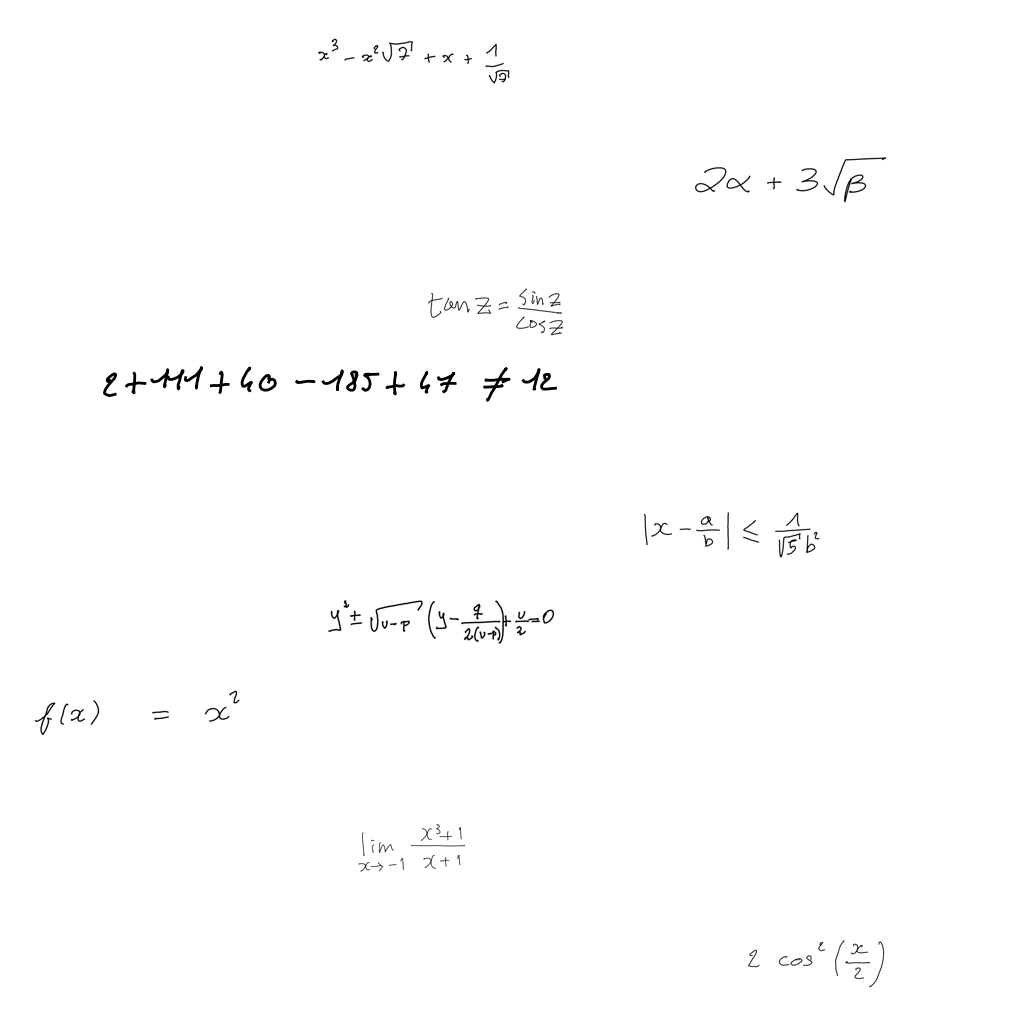 x³ - x²√7 + x + 1/√7
2α + 3√β
tan z = sin z / cos z
2 + 111 + 40 - 185 + 47 ≠ 12
|x - a/b| ≤ 1/(√5 b²)
y² ± √(u-p) (y - q/(2(u-p))) + u/2 = 0
f(x) = x²
lim x→-1 (x³+1)/(x+1)
2 cos² (x/2)